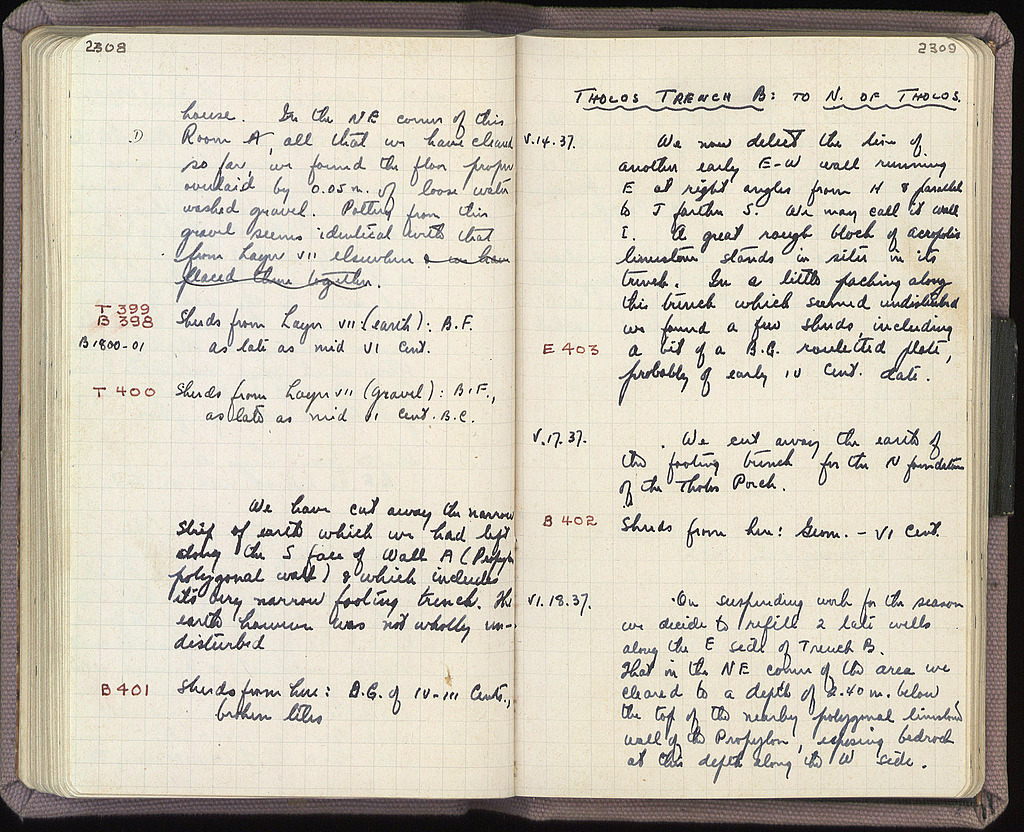 2308
house. In the NE corner of this
D Room A, all that we have cleared
so far, we found the floor proper
overlaid by 0.05 m. of loose water
washed gravel. Pottery from this
gravel seems identical with that
from Layer VII elsewhere & we have
placed them together.
T 399
B 398 Sherds from Layer VII (earth): B.F.
B 1800-01 as late as mid VI Cent.
T 400 Sherds from Layer VII (gravel): B.F.,
as late as mid VI Cent. B.C.
We have cut away the narrow
strip of earth which we had left
along the S face of Wall A (Propylon
polygonal wall) & which includes
its very narrow footing trench. The
earth however was not wholly un-
disturbed
B 401 Sherds from here: B.G. of IV-III Cents.,
broken tiles
2309
THOLOS TRENCH B: TO N. OF THOLOS.
V.14.37. We now detect the line of
another early E-W wall running
E at right angles from H & parallel
to J farther S. We may call it wall
I. A great rough block of acropolis
limestone stands in situ in its
trench. In a little packing along
this trench which seemed undisturbed
we found a few sherds, including
E 403 a bit of a B.G. rouletted plate,
probably of early IV Cent. date.
V.17.37. We cut away the earth of
the footing trench for the N foundation
of the Tholos Porch.
B 402 Sherds from here: Geom. - VI Cent.
VI.18.37. On suspending work for the season
we decide to refill 2 late wells
along the E side of Trench B.
That in the NE corner of the area we
cleared to a depth of 2.40 m. below
the top of the nearby polygonal limestone
wall of the Propylon, exposing bedrock
at this depth along the W side.